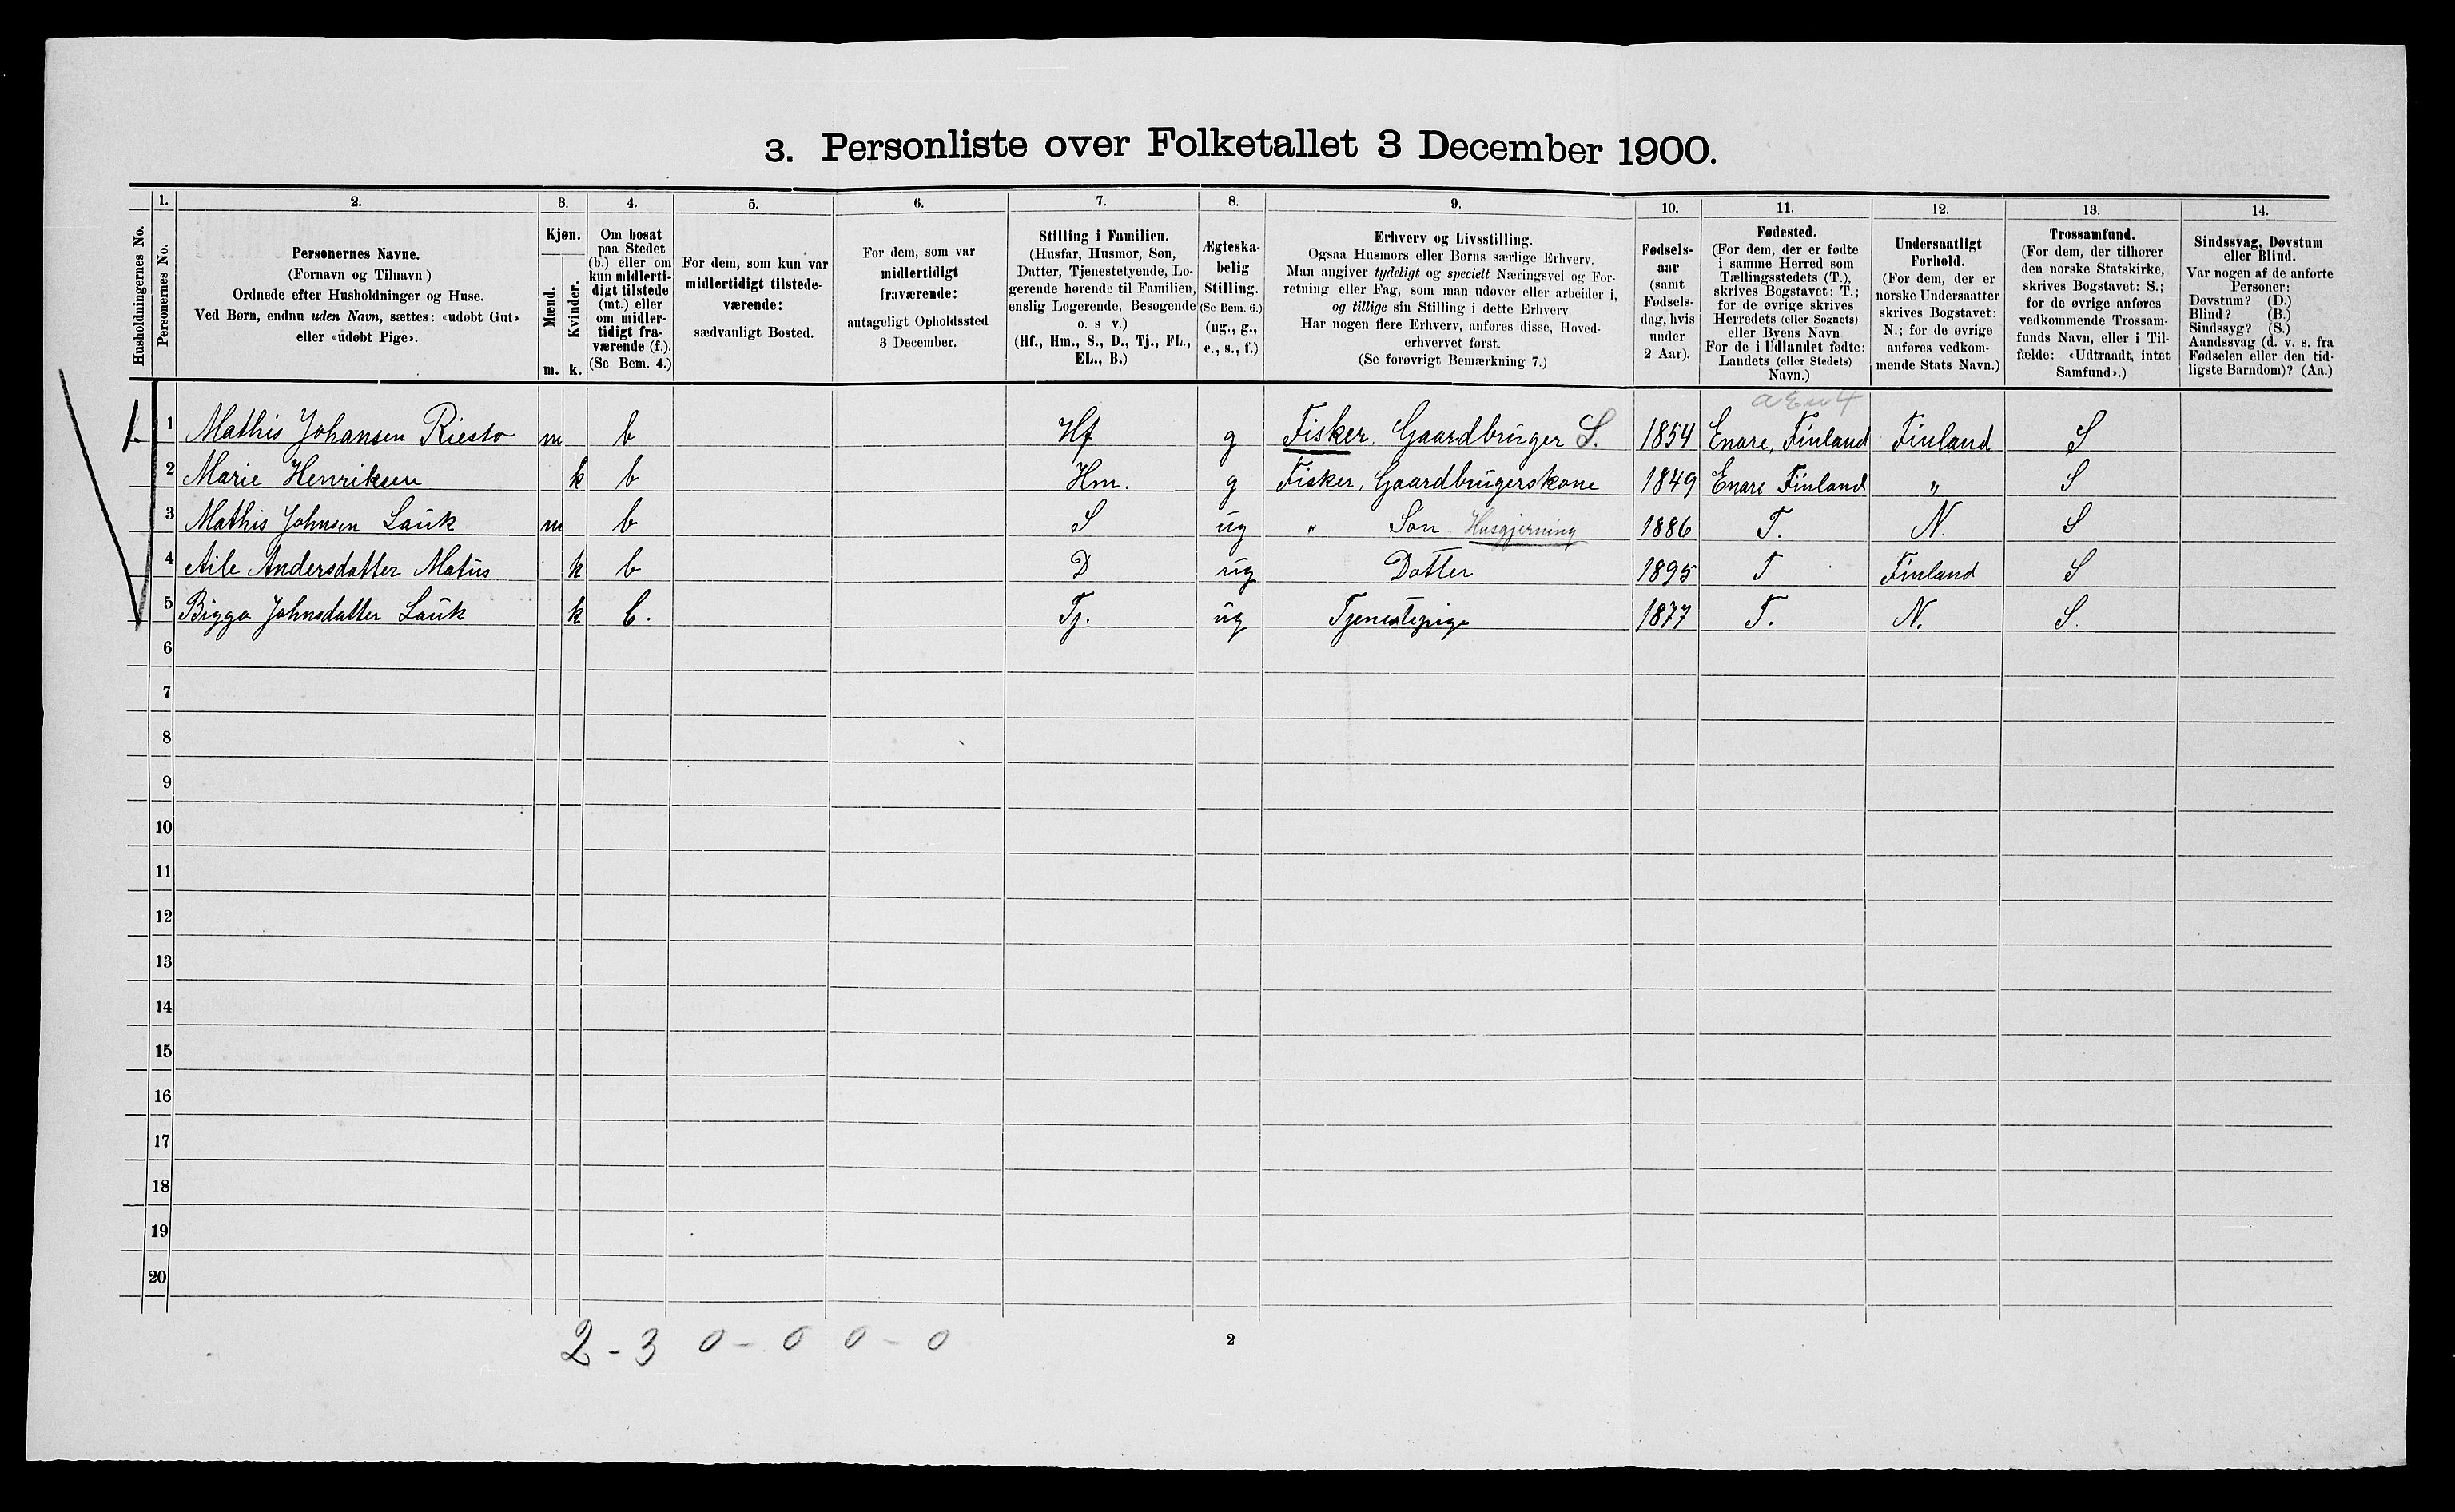 3. Personliste over Folketallet 3 December 1900.
Husholdningernes No.
1. Personernes No.
2. Personernes Navne. (Fornavn og Tilnavn) Ordnede efter Husholdninger og Huse. Ved Børn, endnu uden Navn, sættes: «udøbt Gut» eller «udøbt Pige».
3. Kjøn. Mænd. m. Kvinder. k.
4. Om bosat paa Stedet (b.) eller om kun midlertidigt tilstede (mt.) eller om midlertidigt fraværende (f.). (Se Bem. 4.)
5. For dem, som kun var midlertidigt tilstedeværende: sædvanligt Bosted.
6. For dem, som var midlertidigt fraværende: antageligt Opholdssted 3 December.
7. Stilling i Familien. (Husfar, Husmor, Søn, Datter, Tjenestetyende, Logerende hørende til Familien, enslig Logerende, Besøgende o. s v.) (Hf., Hm., S., D., Tj., FL., EL., B.)
8. Ægteskabelig Stilling. (Se Bem. 6.) (ug., g., e., s., f.)
9. Erhverv og Livsstilling. Ogsaa Husmors eller Børns særlige Erhverv. Man angiver tydeligt og specielt Næringsvei og Forretning eller Fag, som man udøver eller arbeider i, og tillige sin Stilling i dette Erhverv Har nogen flere Erhverv, anføres disse, Hovederhvervet først. (Se forøvrigt Bemærkning 7.)
10. Fødselsaar (samt Fødselsdag, hvis under 2 Aar).
11. Fødested. (For dem, der er fødte i samme Herred som Tællingsstedets (T.), skrives Bogstavet: T.; for de øvrige skrives Herredets (eller Sognets) eller Byens Navn For de i Udlandet fødte: Landets (eller Stedets) Navn.)
12. Undersaatligt Forhold. (For dem, der er norske Undersaatter skrives Bogstavet: N.; for de øvrige anføres vedkommende Stats Navn.)
13. Trossamfund. (For dem, der tilhører den norske Statskirke, skrives Bogstavet: S.; for de øvrige anføres vedkommende Trossamfunds Navn, eller i Tilfælde: «Udtraadt, intet Samfund».)
14. Sindssvag, Døvstum eller Blind. Var nogen af de anførte Personer: Døvstum? (D.) Blind? (B.) Sindssyg? (S.) Aandssvag (d. v. s. fra Fødselen eller den tidligste Barndom)? (Aa.)
1. 1 Mathis Johansen Riesto m b Hf g Fisker, Gaardbruger S. 1854 Enare, Finland Finland S
2 Marie Henriksen k b Hm. g Fisker, Gaardbrugerskone 1849 Enare Finland " S
3 Mathis Johnsen Lauk m b S ug " Søn - Husgjerning 1886 T. N. S
4 Aile Andersdatter Matus k b D ug Datter 1895 T Finland S
5 Bigga Johnsdatter Lauk k b. Tj. ug Tjenestepige 1877 T. N. S.
6
7
8
9
10
11
12
13
14
15
16
17
18
19
20
2 - 3 0 - 0 0 - 0
2